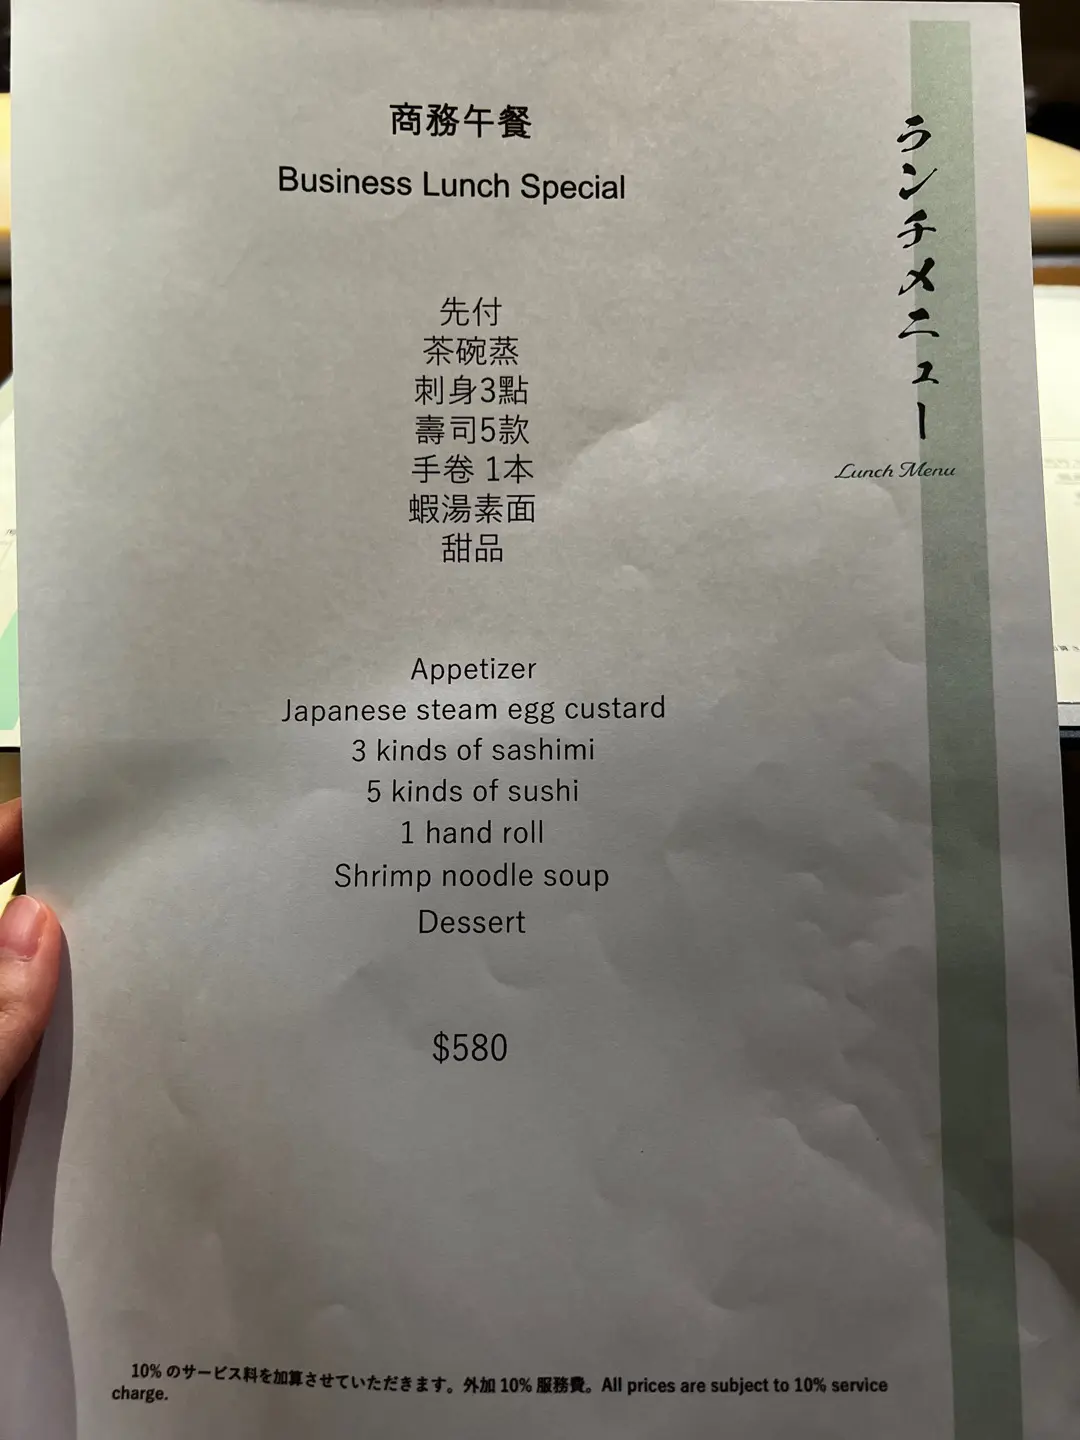 商務午餐
Business Lunch Special
先付
茶碗蒸
刺身3點
壽司5款
手卷 1本
蝦湯素面
甜品
Appetizer
Japanese steam egg custard
3 kinds of sashimi
5 kinds of sushi
1 hand roll
Shrimp noodle soup
Dessert
$580
ランチメニュー
Lunch Menu
10% のサービス料を加算させていただきます。外加 10% 服務費。All prices are subject to 10% service
charge.